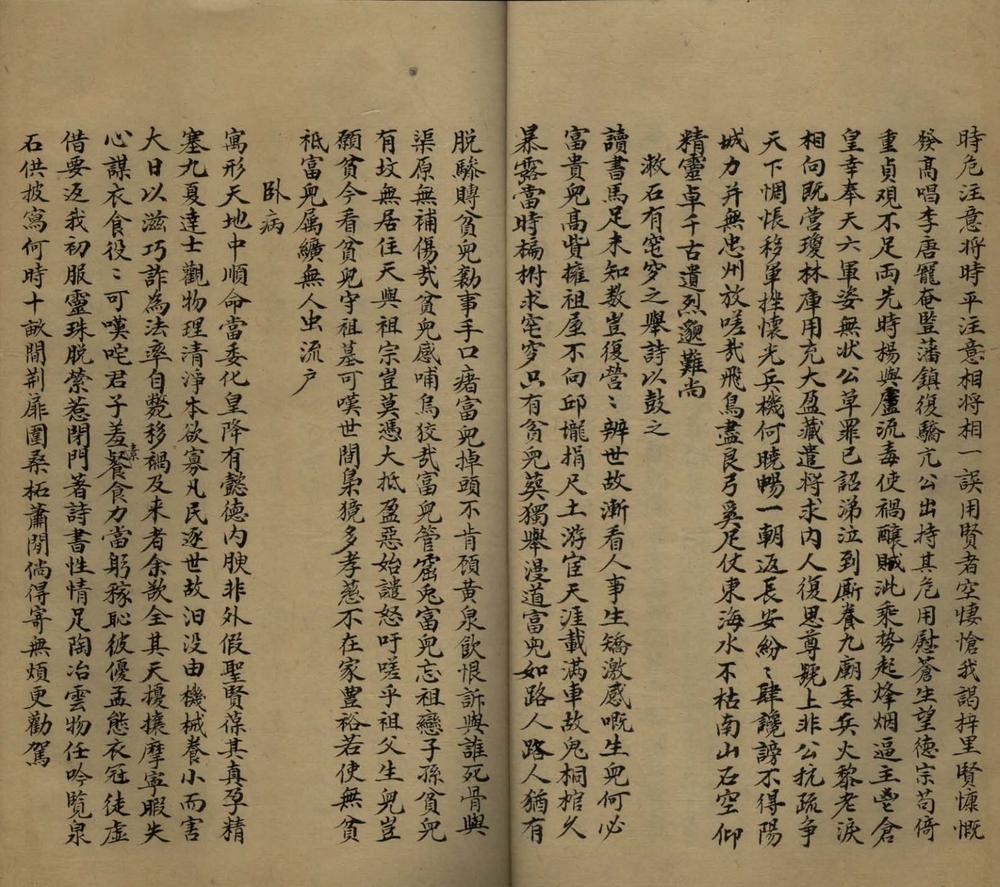 時危注意將時平注意相將相一誤用賢者空悽愴我謁梓里賢慷慨
發高唱李唐寵奄豎藩鎮復驕亢公出持其危用慰蒼生望德宗苟倚
重貞觀不足兩先時楊與盧流毒使禍釀賊泚乘勢起烽烟逼主鑾倉
皇幸奉天六軍姿無狀公草罪已詔涕泣到廝養九廟委兵火黎老淚
相向既營瓊林庫用充大盈藏遣將求內人復思尊號上非公抗疏爭
天下惆悵移軍挫懷光兵機何曉暢一朝返長安紛〻肆讒謗不得陽
城力幷無忠州放嗟哉飛鳥盡良弓奚足仗東海水不枯南山石空仰
精靈卓千古遺烈邈難尚
敕石有窀穸之舉詩以鼓之
讀書馬足未知数豈復營〻辨世故漸看人事生矯激感嘅生兒何必
富貴兒高貲擁祖屋不向邱壠捐尺土游宦天涯載滿車故鬼桐棺久
暴露當時楄柎求窀穸只有貧兒葬獨舉漫道富兒如路人路人猶有
脱驂賻貧兒勸事手口瘏富兒掉頭不肯顧黃泉飲恨訴與誰死骨與
渠原無補傷哉貧兒感哺烏狡哉富兒管窟兎富兒忘祖戀子孫貧兒
有坟無居住天與祖宗豈莫憑大抵盈惡始譴怒吁嗟乎祖父生兒豈
願貧今看貧兒守祖墓可嘆世間梟獍多孝慈不在家豊裕若使無貧
祇富兒属纊無人虫流户
卧病
寓形天地中順命當委化皇降有懿德内腴非外假聖賢葆其真孕精
塞九夏達士觀物理清淨本欲寡凡民逐世故汩没由機械養小而害
大日以滋巧詐為法率自斃移禍及来者余歎全其天擾攘摩寧暇失
心謀衣食役〻可嘆咤君子羞素餐食力當躬稼恥彼優孟態衣冠徒虚
借要返我初服靈珠脱縈惹閉門著詩書性情足陶冶雲物任吟覧泉
石供披寫何時十畝間荆扉圍桑柘蕭閒倘得寄無煩更勸駕